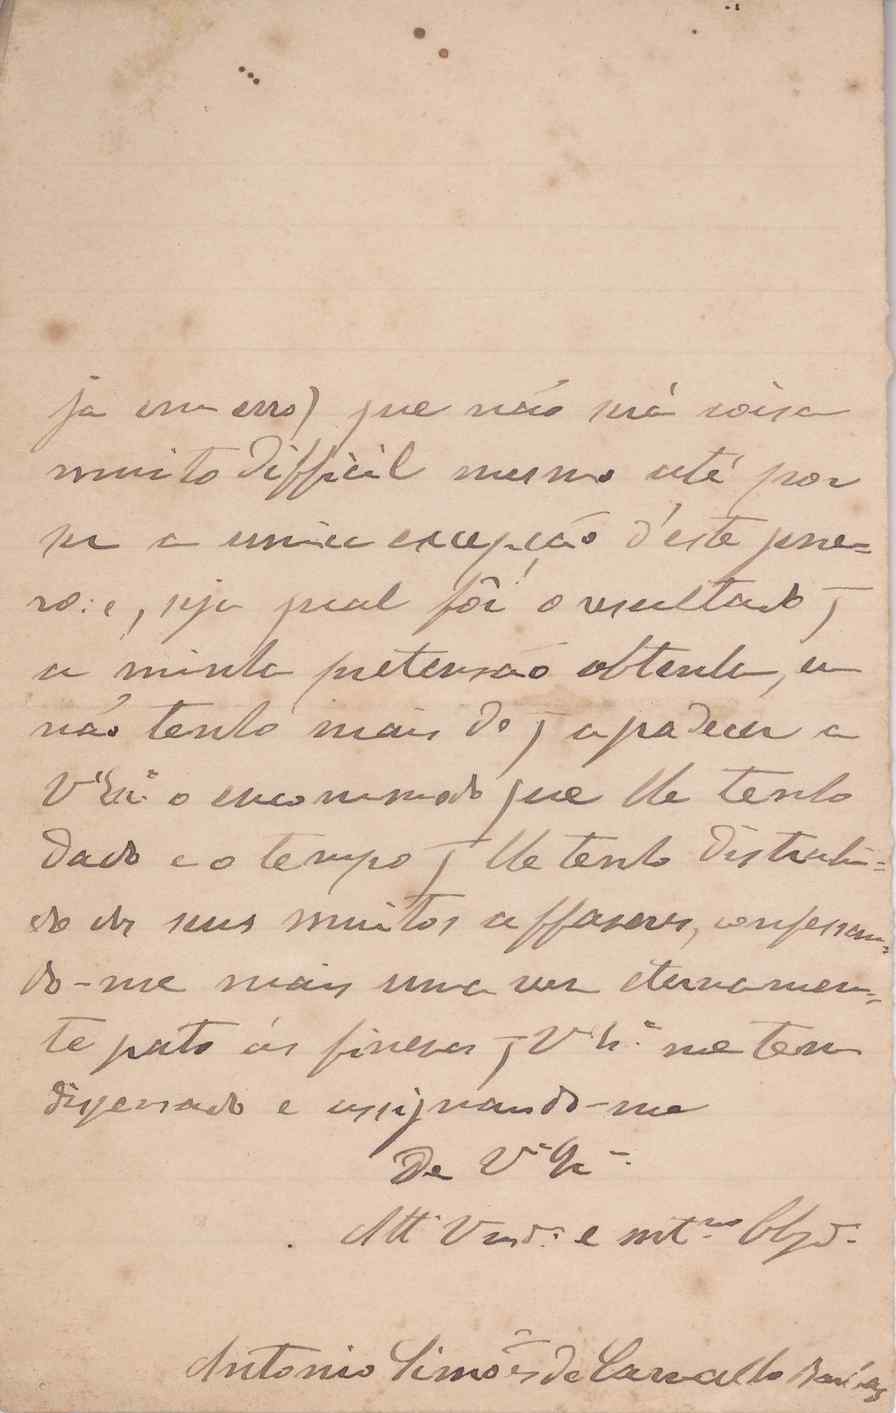 ja um erro) que não será coisa
muito difficil mesmo até por
ser a unica excepção d'este gene=
ro: e, seja qual fôr o resultado q
a minha pretensão obtenha, eu
não tenho mais do q agradecer a
V.ª Ex.ª o encommodo que lhe tenho
dado e o tempo q lhe tenho distrahi=
do dos seus muitos affaseres, confessan=
do-me mais uma vez eternamen=
te grato ás finezas q V.ª Ex.ª me tem
dispensado e assignando-me
De V.ª Ex.ª
Att.º Vend.or e mt.mo Obgd.º
Antonio Simões de Carvalho